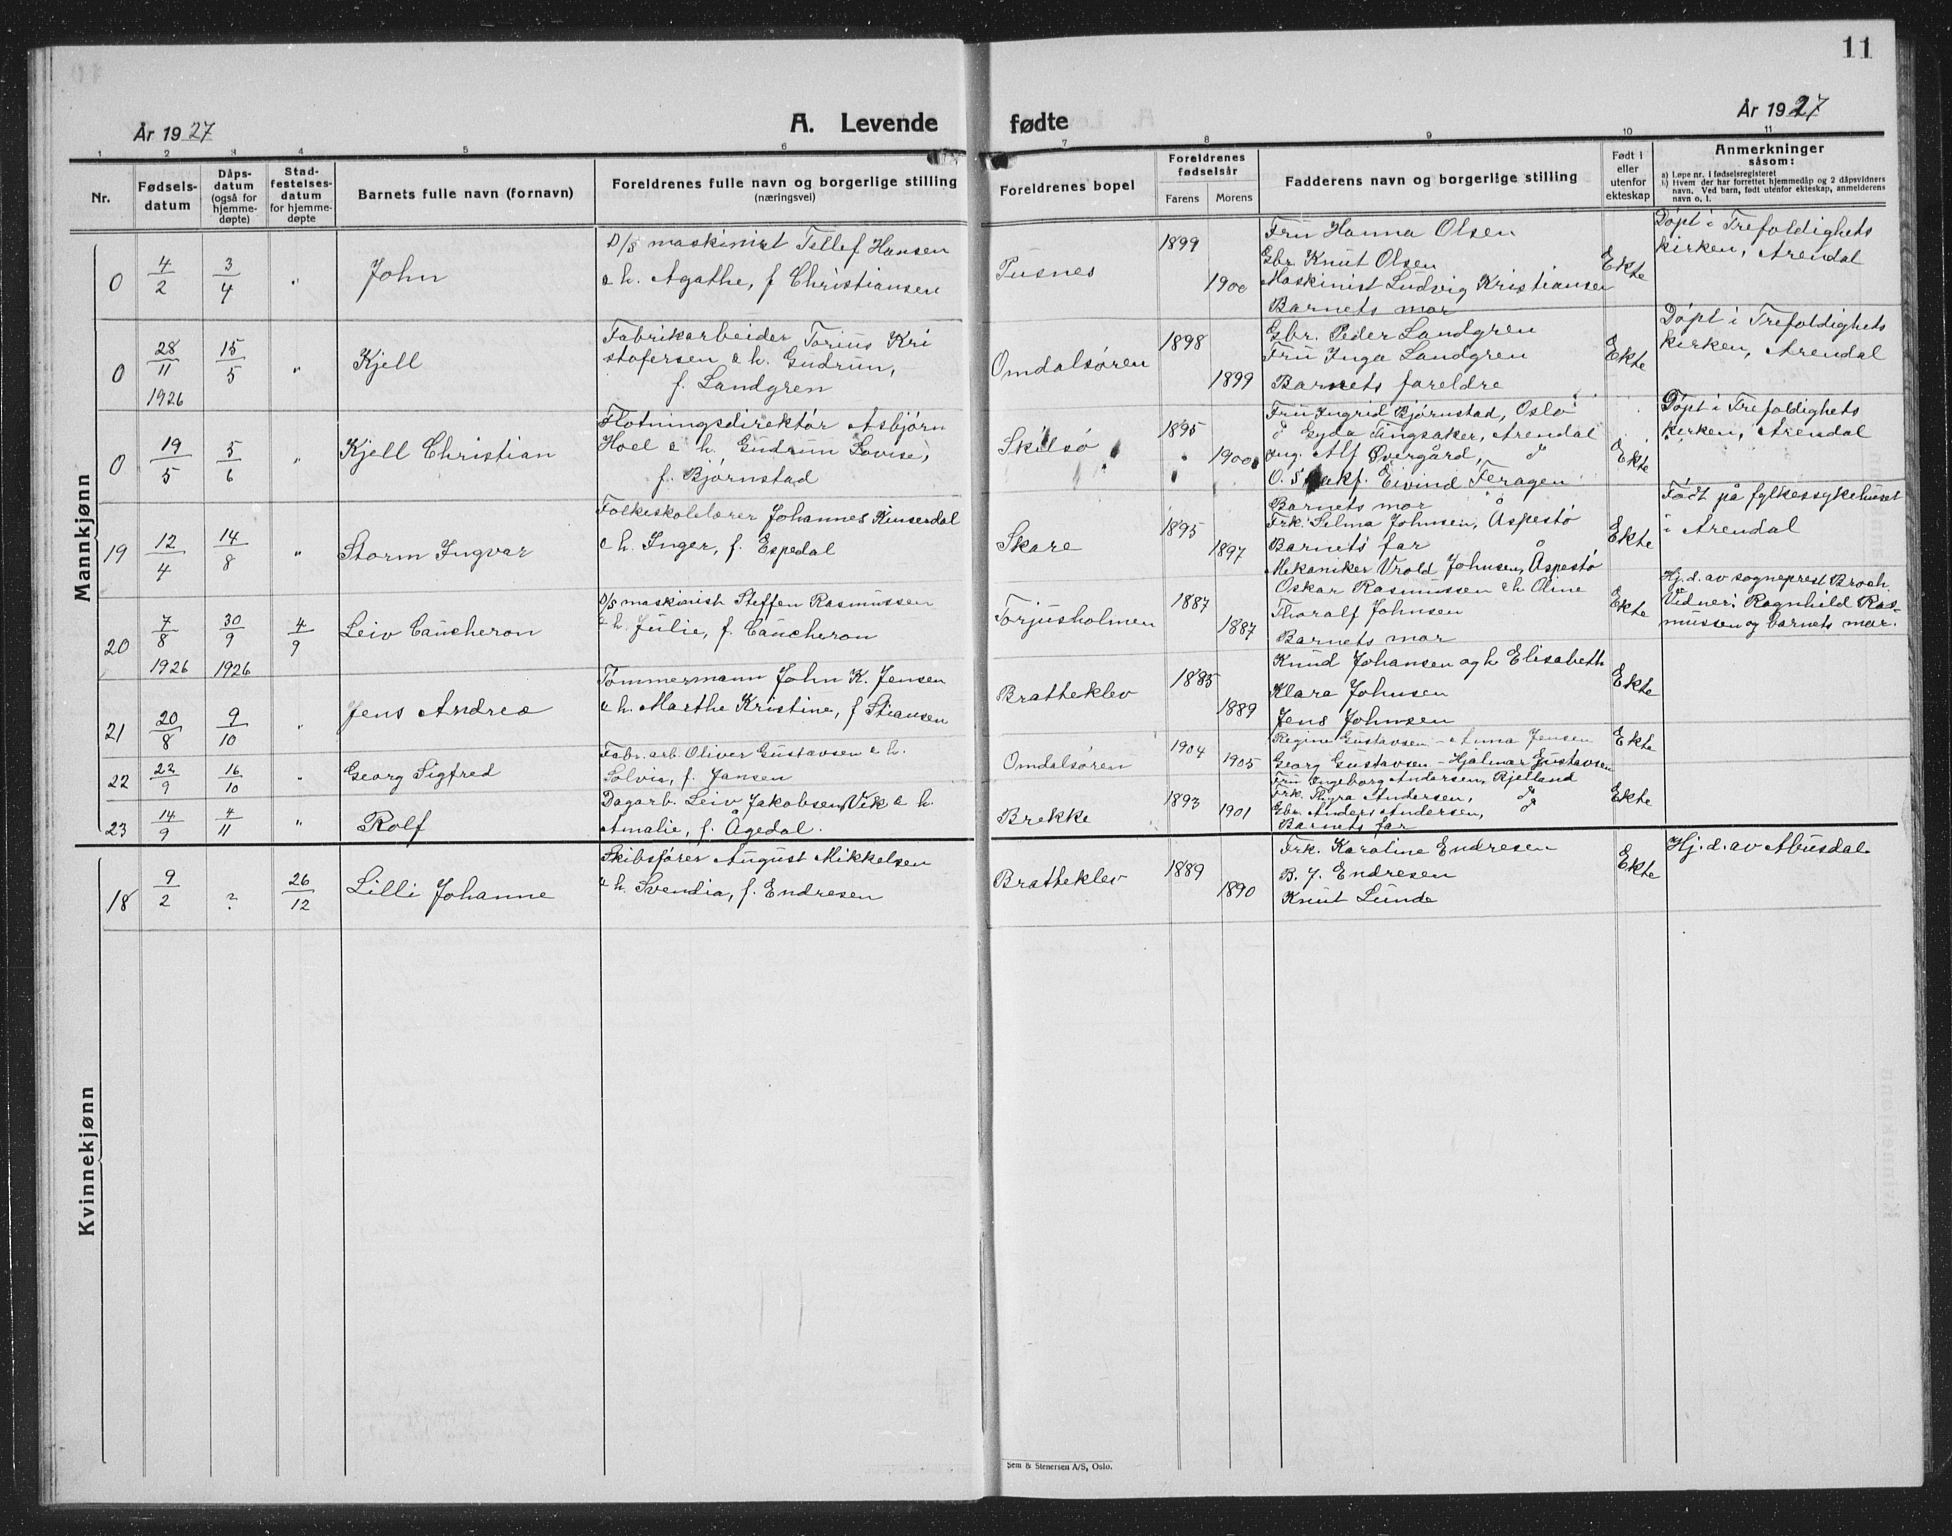 11
År 1927
A. Levende
fødte
År 1927
1 2 3 4 5 6 7 8 9 10 11
Nr.
Fødsels-
datum
Dåps-
datum
(også for
hjemme-
døpte)
Stad-
festelses-
datum
for hjemme-
døpte
Barnets fulle navn (fornavn)
Foreldrenes fulle navn og borgerlige stilling
(næringsvei)
Foreldrenes bopel
Foreldrenes
fødselsår
Farens Morens
Fadderens navn og borgerlige stilling
Født i
eller
utenfor
ekteskap
Anmerkninger
såsom:
a) Løpe nr. i fødselsregisteret
b) Hvem der har forrettet hjemmedåp og 2 dåpsvidners
navn. Ved barn, født utenfor ekteskap, anmelderens
navn o. l.
Mannkjønn
0 4/2 3/4 " John
D/s maskinist Tellef Hansen
e h. Agathe, f Christiansen
Pusnes
1899
1900
Fru Hanna Olsen
Gbr. Knut Olsen
Maskinist Ludvig Kristiansen
Barnets mor
Ekte
Døpt i Trefoldighets
kirken, Arendal
0 28/11 1926 15/5 " Kjell
Fabrikarbeider Torius Kri
stofersen e h. Gudrun,
f. Landgren
Omdalsøren
1898
1899
Gbr. Peder Landgren
Fru Inga Landgren
Barnets foreldre
Ekte
Døpt i Trefoldighets
kirken, Arendal
0 19/5 5/6 " Kjell Christian
Fløtningsdirektør Asbjørn
Hoel e h. Gudrun Lovise,
f. Bjørnstad
Skilsø
1895
1900
Fru Ingrid Bjørnstad, Oslo
" Eyda Tingsaker, Arendal
Ing. Alf Øvergård, "
Eivind Feragen
Barnets mor
Ekte
Døpt i Trefoldighets
kirken, Arendal
19 12/4 14/8 " Storm Ingvar
Folkeskolelærer Johannes Kinserdal
e h. Inger, f. Espedal
Skare
1895
1897
Frk. Selma Johnsen, Åspestø
Barnets far
Mekaniker Vrold Johnsen, Åspestø
Ekte
Født på fylkessykehuset
i Arendal
20 7/8 1926 30/9 1926 4/9 Leiv Caucheron
D/s maskinist Steffen Rasmussen
e h. Julie, f. Caucheron
Torjusholmen
1887
1887
Oskar Rasmussen e h Oline
Thoralf Johnsen
Barnets mor
Ekte
Hj. d. av sogneprest Broch
Vidner: Ragnhild Ras-
mussen og barnets mor.
21 20/8 9/10 " Jens Andreas
Tømmermann John K. Jensen
e h. Marthe Kristine, f Stiansen
Bratteklev
1885
1889
Knud Johansen og h Elisabeth
Klara Johnsen
Jens Johnsen
Ekte
22 22/9 16/10 " Georg Sigfred
Fabr. arb. Oliver Gustavsen e h.
Solvia, f. Jansen
Omdalsøren
1904
1905
Regine Gustavsen - Anna Jensen
Georg Gustavsen - Hjalmar Gustavsen
Ekte
23 14/9 4/11 " Rolf
Dagarb. Leiv Jakobsen Vik e h.
Amalie, f. Ågedal.
Brekke
1893
1901
Fru Ingeborg Andersen, Bjelland
Frk. Thyra Andersen, "
Gbr. Anders Andersen, "
Barnets far
Ekte
Kvinnekjønn
18 9/2 ? 26/12 Lilli Johanne
Skibsfører August Mikkelsen
e h. Svendia, f. Endresen
Bratteklev
1889
1890
Frk. Karoline Endresen
B. J. Endresen
Knut Lunde
Ekte
Hj. d. av Abusdal.
Sem & Stenersen A/S, Oslo.